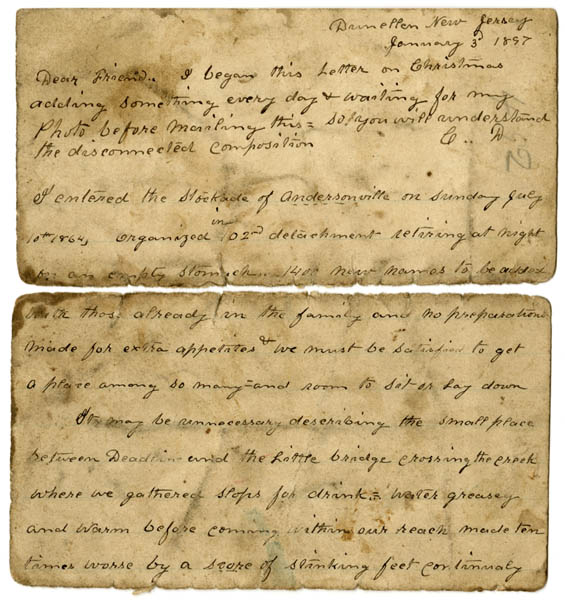 Dunellen New Jersey
January 3d 1897
Dear Friend.. I began this Letter on Christmas
adding something every day & waiting for my
Photo before mailing this = so you will understand
the disconnected composition C.. D
I entered the stockade of Andersonville on Sunday July
10th 1864, organized in 102nd detachment retiring at night
on an empty stomach.. 1400 new names to be
with those already in the family and no preparation
made for extra appetites & we must be satisfied to get
a place among so many = and room to sit or lay down
It may be unnecessary describing the small place
between Deadline and the Little bridge crossing the creek
where we gathered slops for drink = water greasy
and warm before coming within our reach made ten
times worse by a score of stinking feet continualy